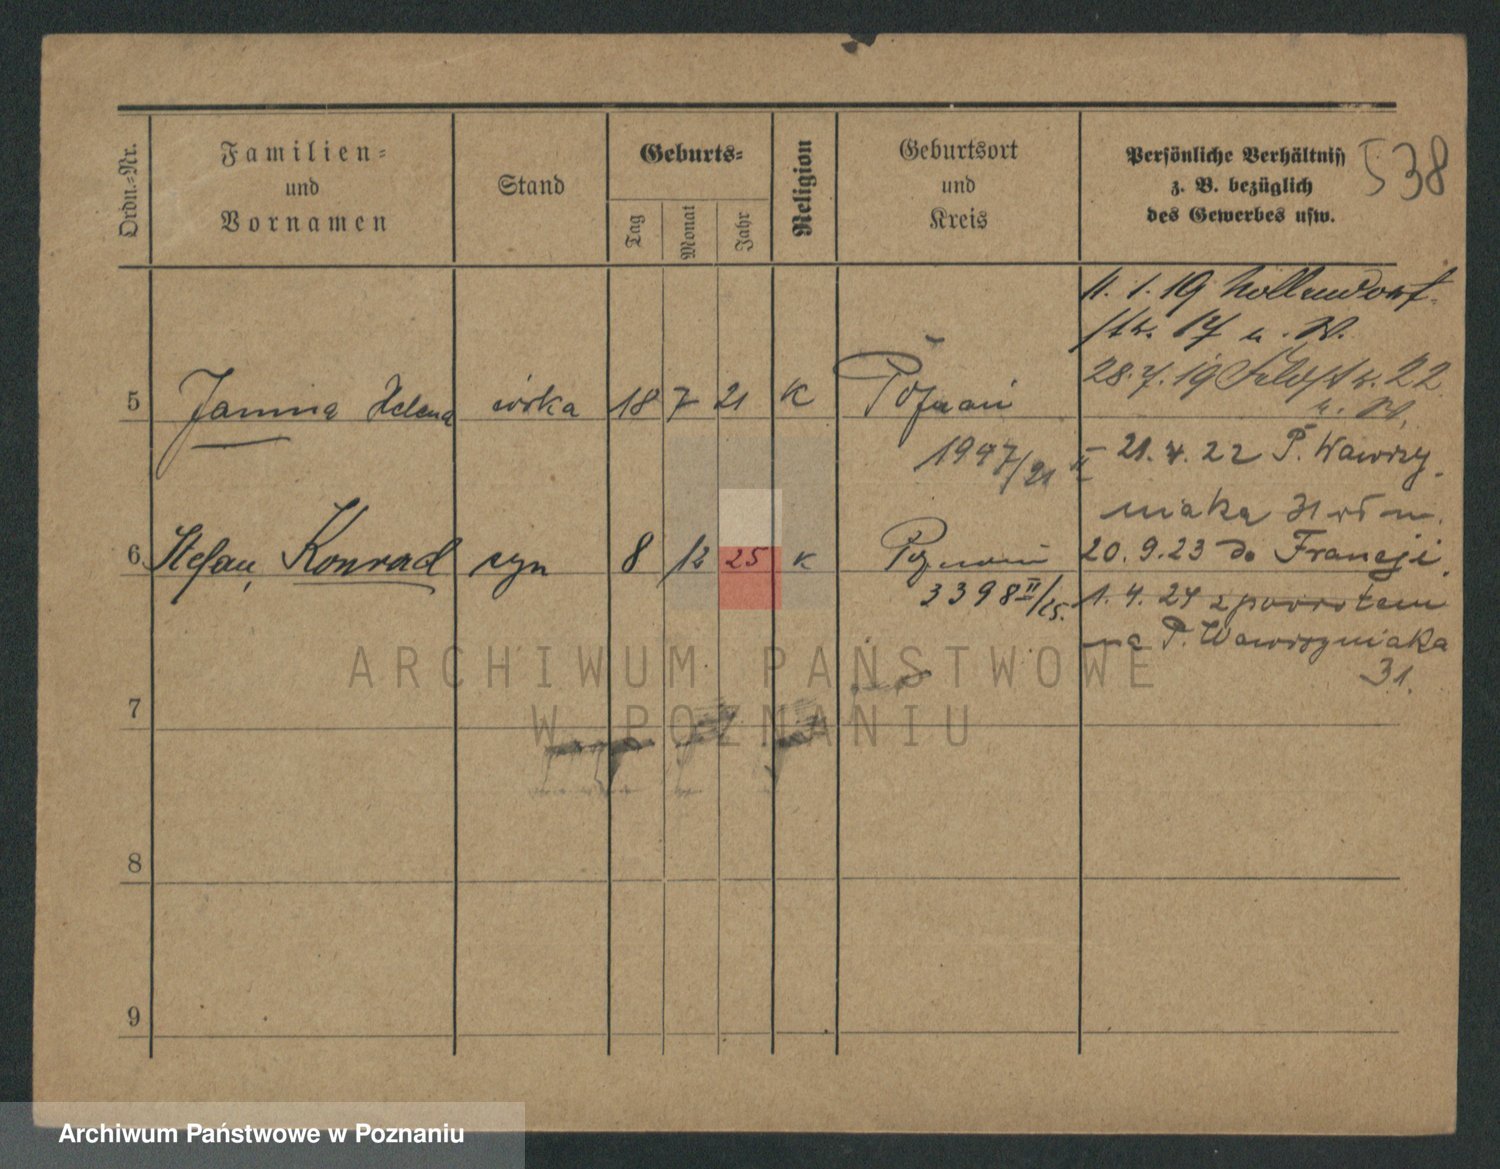 538
Ordn.-Nr.
Familien-
und
Vornamen
Stand
Geburts-
Tag
Monat
Jahr
Religion
Geburtsort
und
Kreis
Persönliche Verhältniss
z. B. bezüglich
des Gewerbes usw.
11. 1. 19 Nollendorf-
str. 17 u. W.
28. 7. 19 Feldstr. 22
u. W.
5 Janina Helena córka 18 7 21 K Poznań
1947/21 II
- 21. 4. 22 P. Wawrzy-
niaka 31
6 Stefan, Konrad syn 8 12 25 K Poznań
3398 II/25.
20. 9. 23 do Francji.
1. 4. 24 z powrotem
na P. Wawrzyniaka
31.
7
8
9
ARCHIWUM PAŃSTWOWE
W POZNANIU
Archiwum Państwowe w Poznaniu